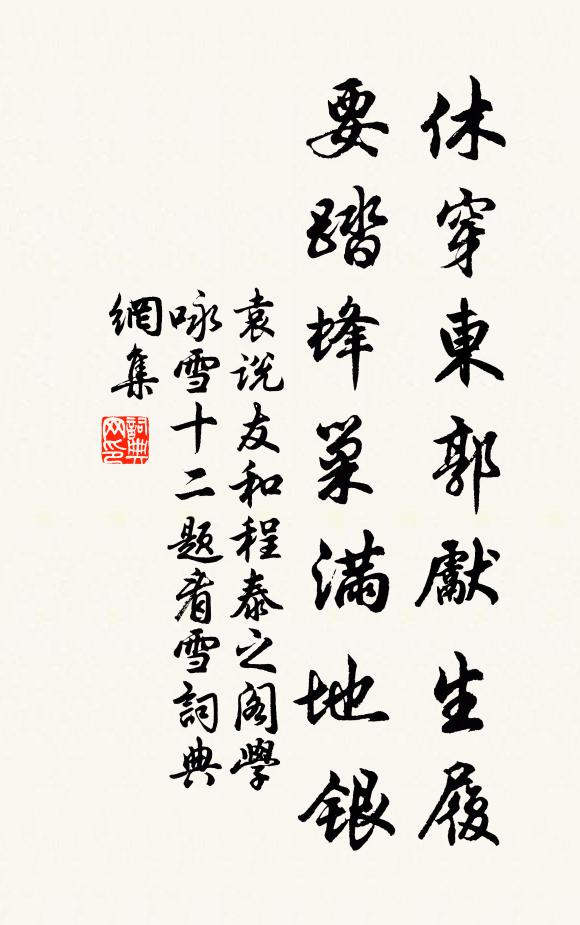 休穿東郭獻生履
要踏蜂巢滿地銀
袁説友和程泰之閣學
咏雪十二題看雪詞典
網集
詞典
网印